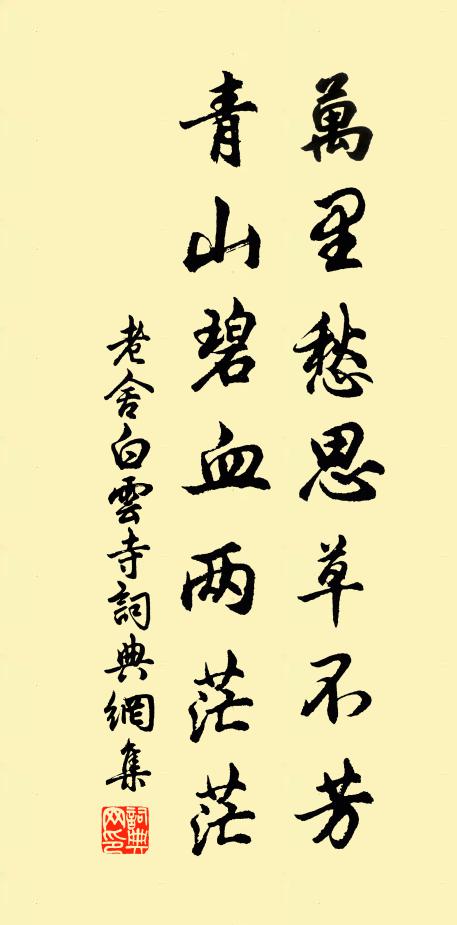 萬里愁思草不芳
青山碧血两茫茫
老舍白雲寺詞典網集
詞典网印